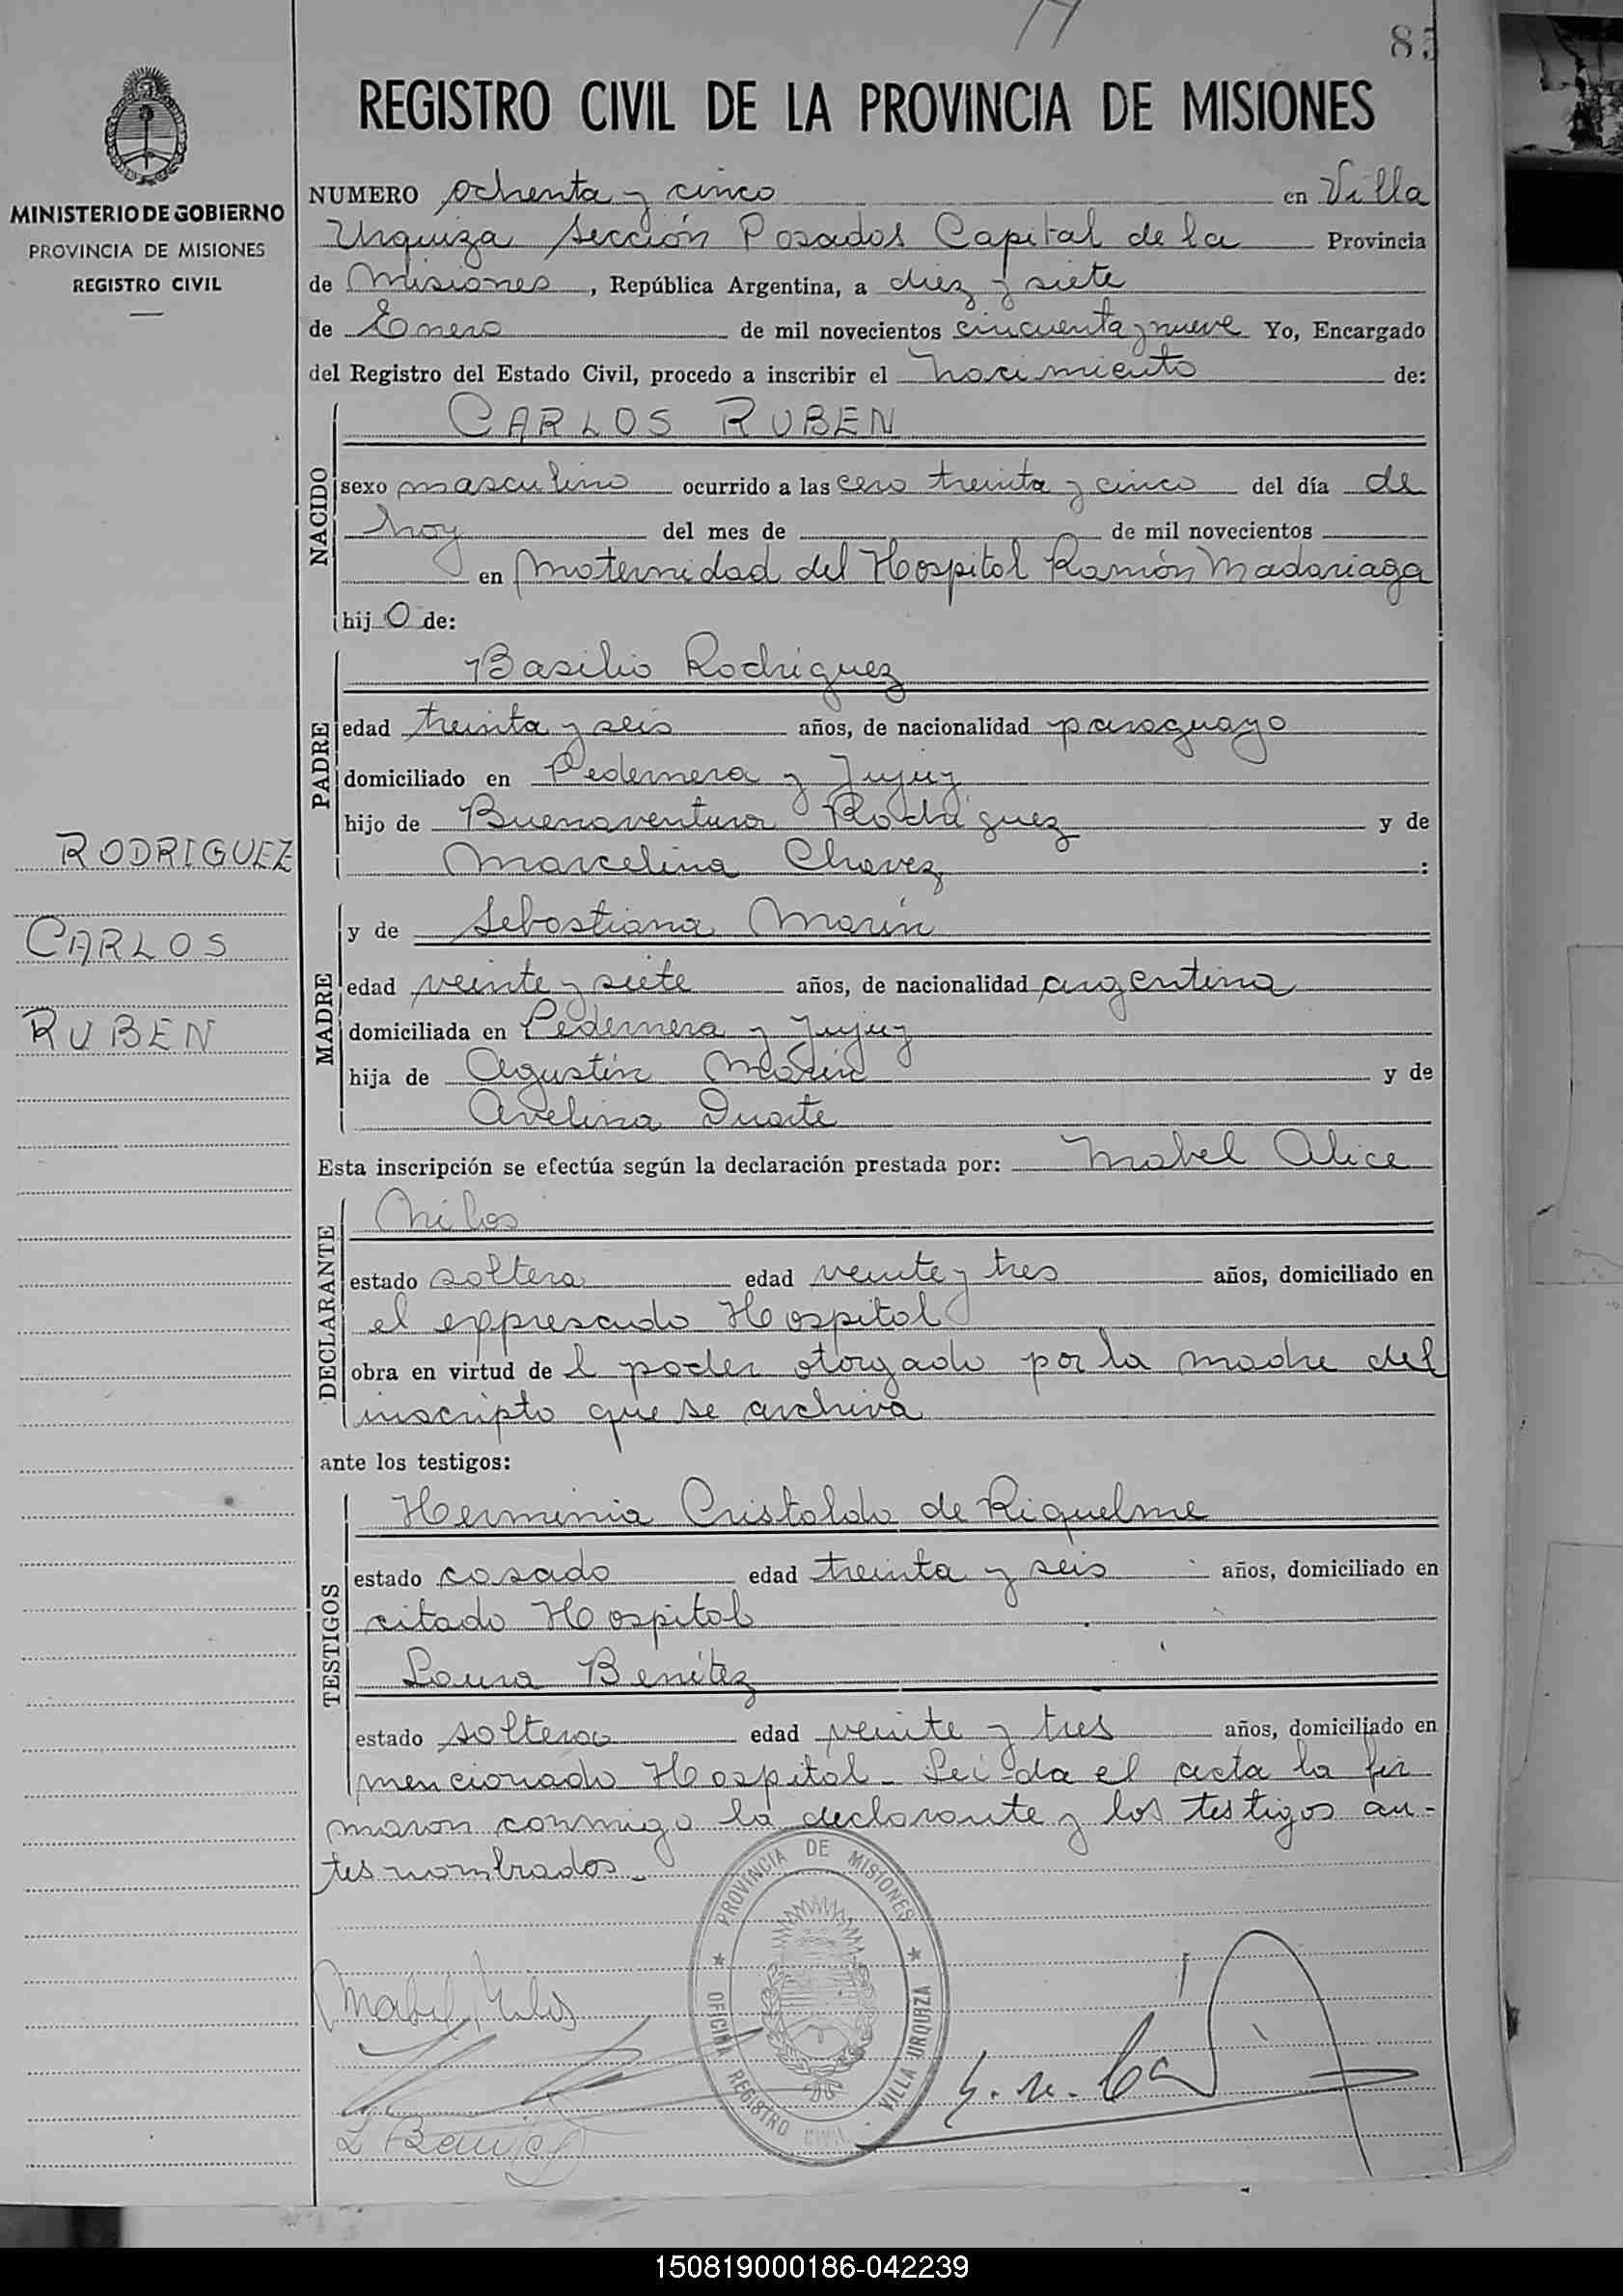 17
85
REGISTRO CIVIL DE LA PROVINCIA DE MISIONES
MINISTERIO DE GOBIERNO
PROVINCIA DE MISIONES
REGISTRO CIVIL
NUMERO ochenta y cinco en Villa
Urquiza Sección Posadas Capital de la Provincia
de Misiones, República Argentina, a diez y siete
de Enero de mil novecientos cincuenta y nueve Yo, Encargado
del Registro del Estado Civil, procedo a inscribir el nacimiento de:
NACIDO
CARLOS RUBEN
sexo masculino ocurrido a las cero treinta y cinco del día de
hoy del mes de de mil novecientos
en Maternidad del Hospital Ramón Madariaga
hijo de:
PADRE
Basilio Rodriguez
edad treinta y seis años, de nacionalidad paraguayo
domiciliado en Pedernera y Jujuy
hijo de Buenaventura Rodriguez y de
Marcelina Chavez :
RODRIGUEZ
CARLOS
RUBEN
MADRE
y de Sebastiana Marín
edad veinte y siete años, de nacionalidad argentina
domiciliada en Pedernera y Jujuy
hija de Agustín Marín y de
Avelina Duarte
Esta inscripción se efectúa según la declaración prestada por: Mabel Alice
DECLARANTE
estado soltera edad veinte y tres años, domiciliado en
el expresado Hospital
obra en virtud de l poder otorgado por la madre del
inscripto que se archiva
ante los testigos:
TESTIGOS
Herminia Cristaldo de Riquelme
estado casado edad treinta y seis años, domiciliado en
citado Hospital
Laura Benítez
estado soltera edad veinte y tres años, domiciliado en
mencionado Hospital - Leída el acta la fir
maron conmigo la declarante y los testigos an-
tes nombrados.-
PROVINCIA DE MISIONES
OFICINA REGISTRO CIVIL - VILLA URQUIZA
Mabel
150819000186-042239